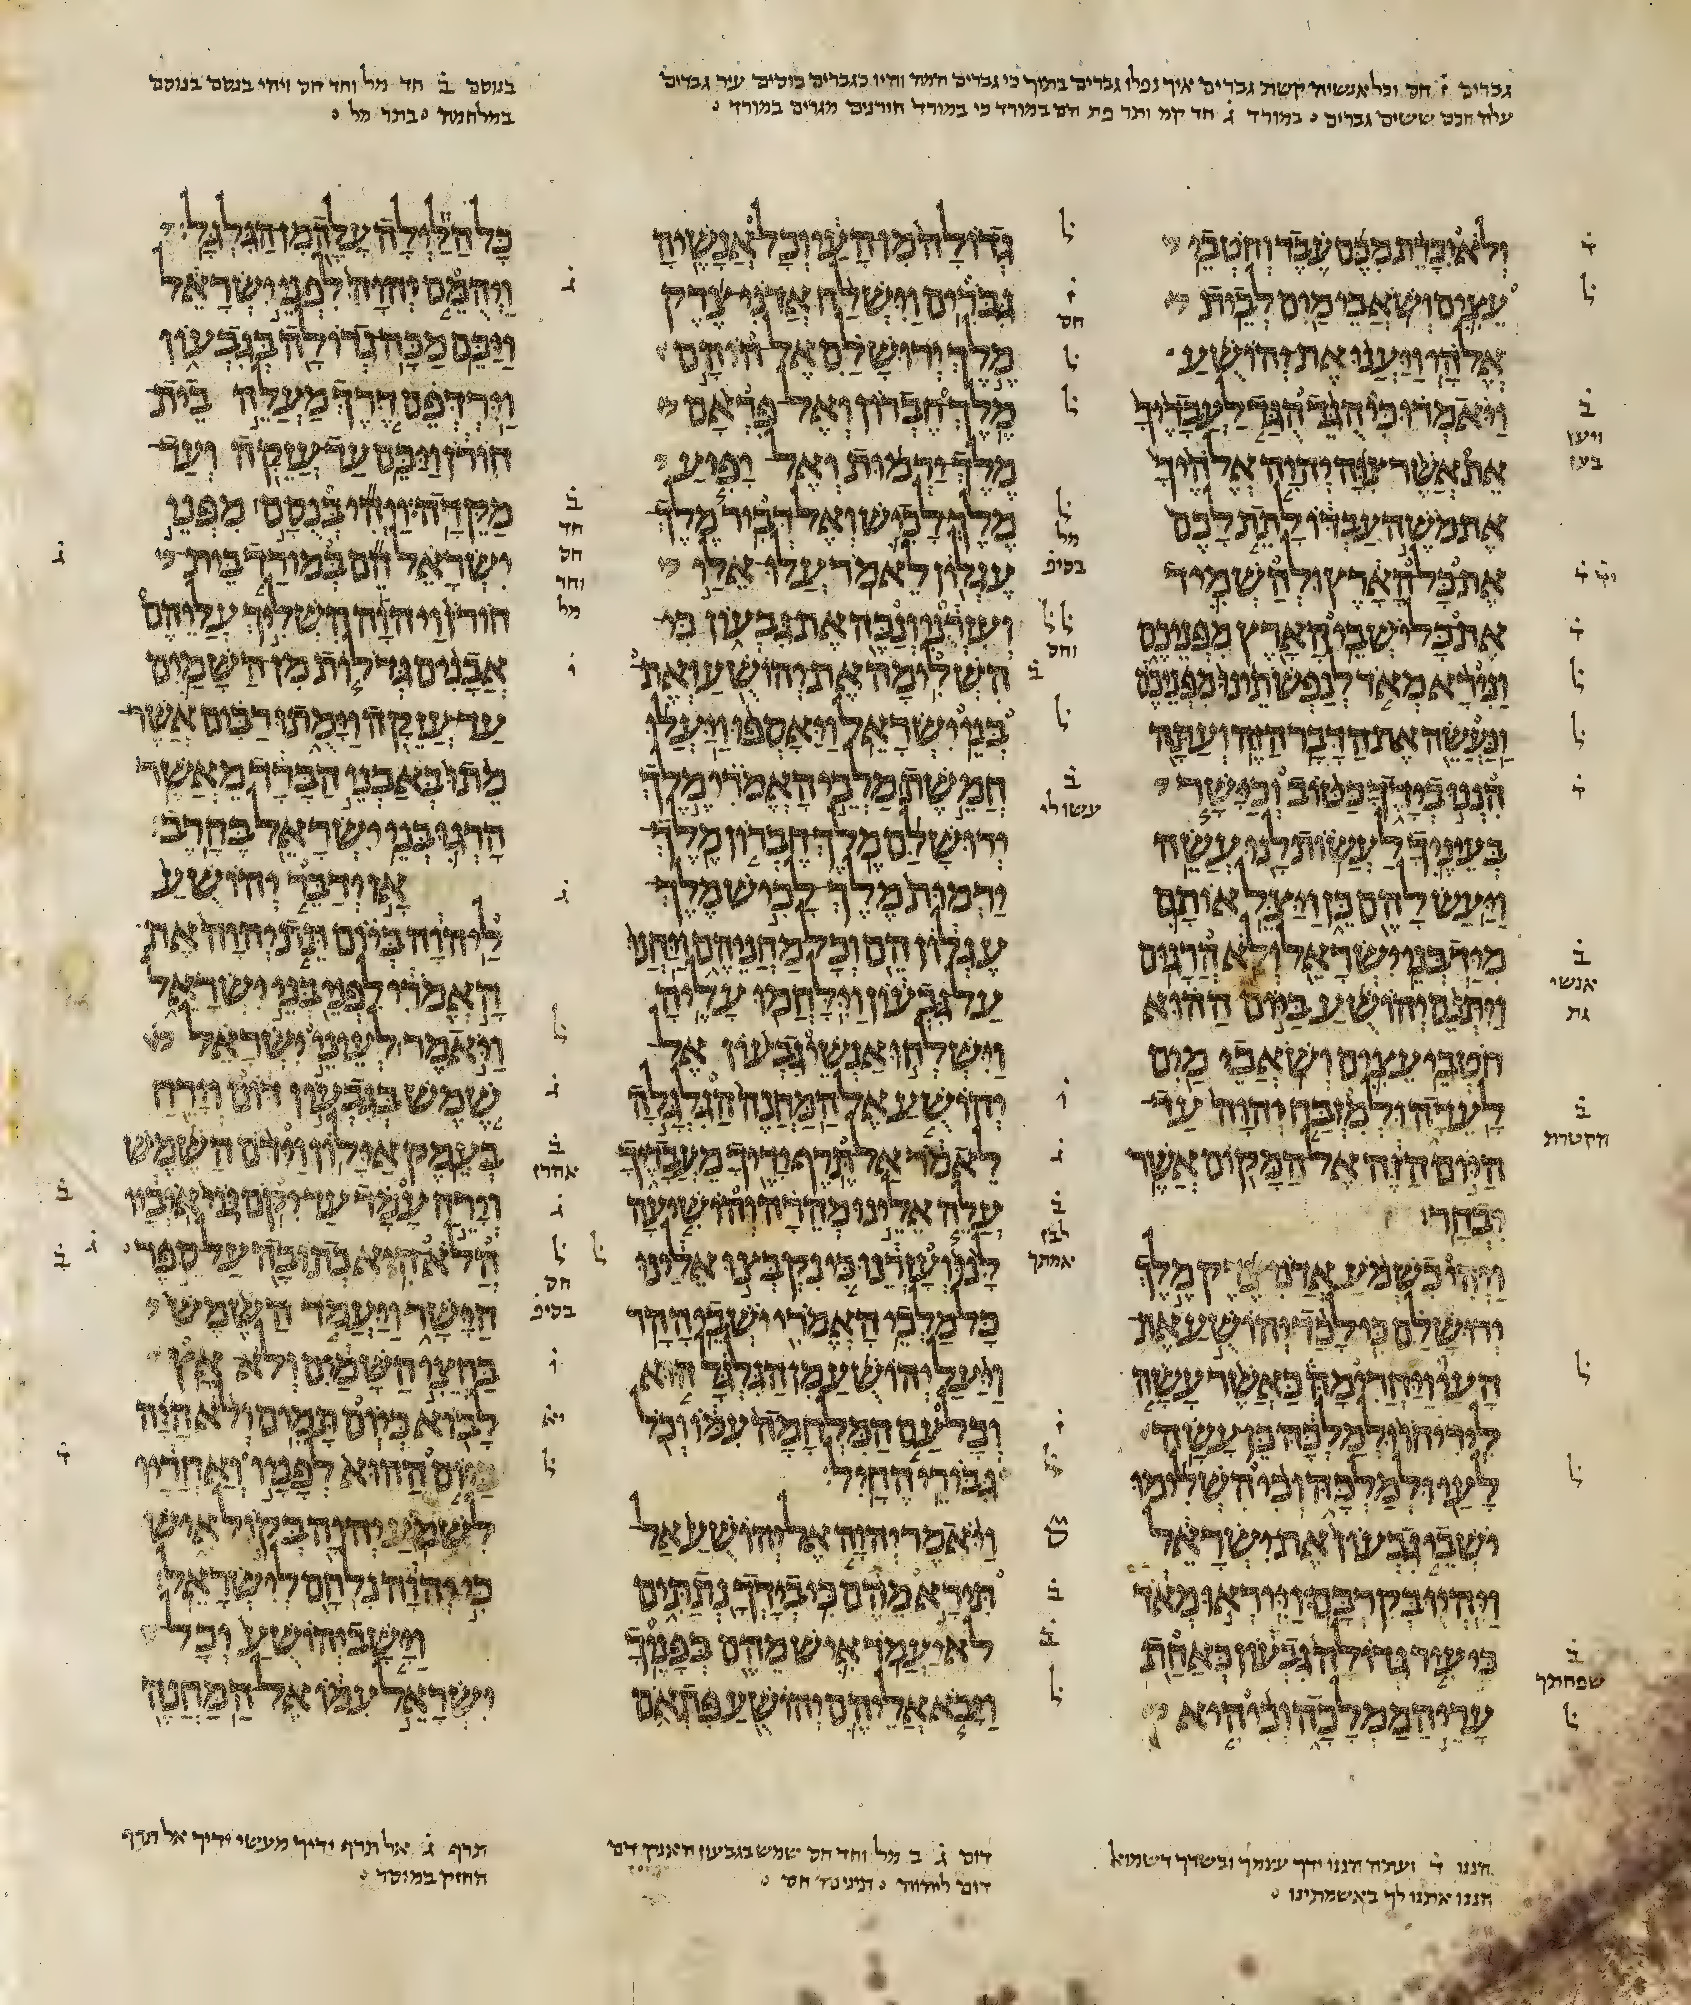 גברים ז חס וכל אנשיה קשת גברים איך נפלו גברים בתוך כי גברים המה והיו כגברים בוסים עיר גברים
עלה חכם ששים גברים במורד ג חד קמ ותר פת הם במורד כי במורד חורנים מגרים במורד
בנוסם ב חד מל וחד חס ויהי בנסם בנוסם
במלחמה בתר מל
ולא יכרת מכם עבד וחטבי
עצים ושאבי מים לבית
אלהי ויענו את יהושע
ויאמרו כי הגד הגד לעבדיך
את אשר צוה יהוה אלהיך
את משה עבדו לתת לכם
את כל הארץ ולהשמיד
את כל ישבי הארץ מפניכם
ונירא מאד לנפשתינו מפניכם
ונעשה את הדבר הזה ועתה
הננו בידך כטוב וכישר
בעיניך לעשות לנו עשה
ויעש להם כן ויצל אותם
מיד בני ישראל ולא הרגום
ויתנם יהושע ביום ההוא
חטבי עצים ושאבי מים
לעדה ולמזבח יהוה עד
היום הזה אל המקום אשר
יבחר
ויהי כשמע אדני צדק מלך
ירושלם כי לכד יהושע את
העי ויחרימה כאשר עשה
ליריחו ולמלכה כן עשה
לעי ולמלכה וכי השלימו
ישבי גבעון את ישראל
ויהיו בקרבם וייראו מאד
כי עיר גדולה גבעון כאחת
ערי הממלכה וכי היא
גדולה מן העי וכל אנשיה
גברים וישלח אדני צדק
מלך ירושלם אל הוהם
מלך חברון ואל פראם
מלך ירמות ואל יפיע
מלך לכיש ואל דביר מלך
עגלון לאמר עלו אלי
ועזרני ונכה את גבעון כי
השלימה את יהושע ואת
בני ישראל ויאספו ויעלו
חמשת מלכי האמרי מלך
ירושלם מלך חברון מלך
ירמות מלך לכיש מלך
עגלון הם וכל מחניהם ויחנו
על גבעון וילחמו עליה
וישלחו אנשי גבעון אל
יהושע אל המחנה הגלגלה
לאמר אל תרף ידיך מעבדיך
עלה אלינו מהרה והושיעה
לנו ועזרנו כי נקבצו אלינו
כל מלכי האמרי ישבי ההר
ויעל יהושע מן הגלגל הוא
וכל עם המלחמה עמו וכל
גבורי החיל
ויאמר יהוה אל יהושע אל
תירא מהם כי בידך נתתים
לא יעמד איש מהם בפניך
ויבא אליהם יהושע פתאם
כל הלילה עלה מן הגלגל
ויהמם יהוה לפני ישראל
ויכם מכה גדולה בגבעון
וירדפם דרך מעלה בית
חורן ויכם עד עזקה ועד
מקדה ויהי בנסם מפני
ישראל הם במורד בית
חורן ויהוה השליך עליהם
אבנים גדלות מן השמים
עד עזקה וימתו רבים אשר
מתו באבני הברד מאשר
הרגו בני ישראל בחרב
אז ידבר יהושע
ליהוה ביום תת יהוה את
האמרי לפני בני ישראל
ויאמר לעיני ישראל
שמש בגבעון דום וירח
בעמק אילון וידם השמש
וירח עמד עד יקם גוי איביו
הלא היא כתובה על ספר
הישר ויעמד השמש
בחצי השמים ולא אץ
לבוא כיום תמים ולא היה
כיום ההוא לפניו ואחריו
לשמע יהוה בקול איש
כי יהוה נלחם לישראל
וישב יהושע וכל
ישראל עמו אל המחנה
הננו ד ועתה הננו ידך עצמך ובשרך דשמוא
הננו אתנו לך באשמתינו
דום ג ב מל וחד חס שמש בגבעון האנק דם
דום ליהוה
תרף ג אל תרף ידיך מעשי ידיך אל תרף
החזק במוסר